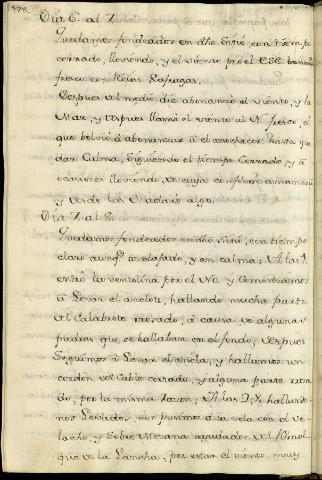 Dia 6. al 7.
Quedamos fondeados en dho Sitio, con tiempo
cerrado, lloviendo, y el viento por el ESE
fresco con Recias Rafagas.
Despues del medio dia abonanzó el viento, y la
Mar, y despues llamó el viento al N. fresco, á
que bolvió á abonanzar á el anochecer hasta que
dar Calma, Siguiendo el tiempo Cerrado, y á
ocasiones lloviendo, de cuya conformidad amaneció
y desde las
Dia 7. al 8.
Quedamos fondeados en dho Sitio, con tiempo
claro aunqe. acelajado, y en calma; A las
entró la ventolina por el NO. y Comenzamos
á Levar el anclote, hallando mucha parte
del Calabrote rozado, á causa de algunas
piedras que se hallaban en el fondo; despues
Seguimos á Levar el ancla, y hallamos un
cordon del Cable cortado, y alguna parte roza
do, por la misma razon, A las 9½ hallando
nos Levados, nos pusimos á la vela con el ve
lacho, y Sobre Mesana ayudados del Remol
que, de la Lancha, por estar el viento muy